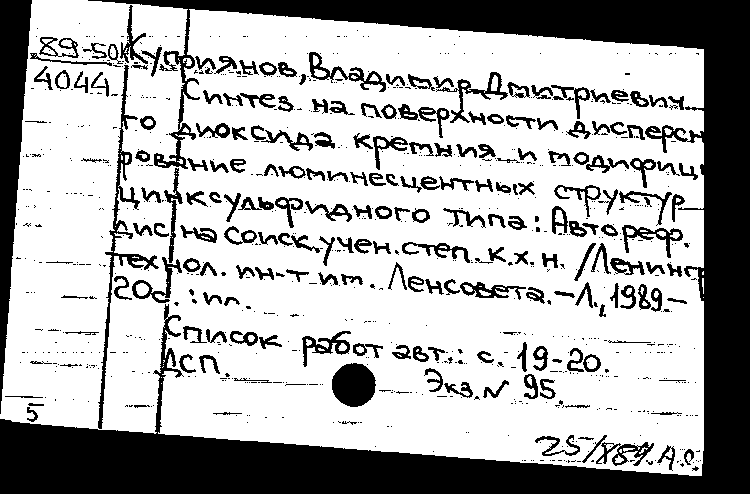 89-50К Куприянов, Владимир Дмитриевич
4044 Синтез на поверхности дисперсн
го диоксида кремния и модифици
рование люминесцентных структур
цинксульфидного типа: Автореф.
дис. на соиск. учен. степ. к.х.н. /Ленингр
технол. ин-т им. Ленсовета. – Л., 1989. –
20с. : ил.
Список работ авт.: с. 19-20.
ДСП. Экз. N 95.
5